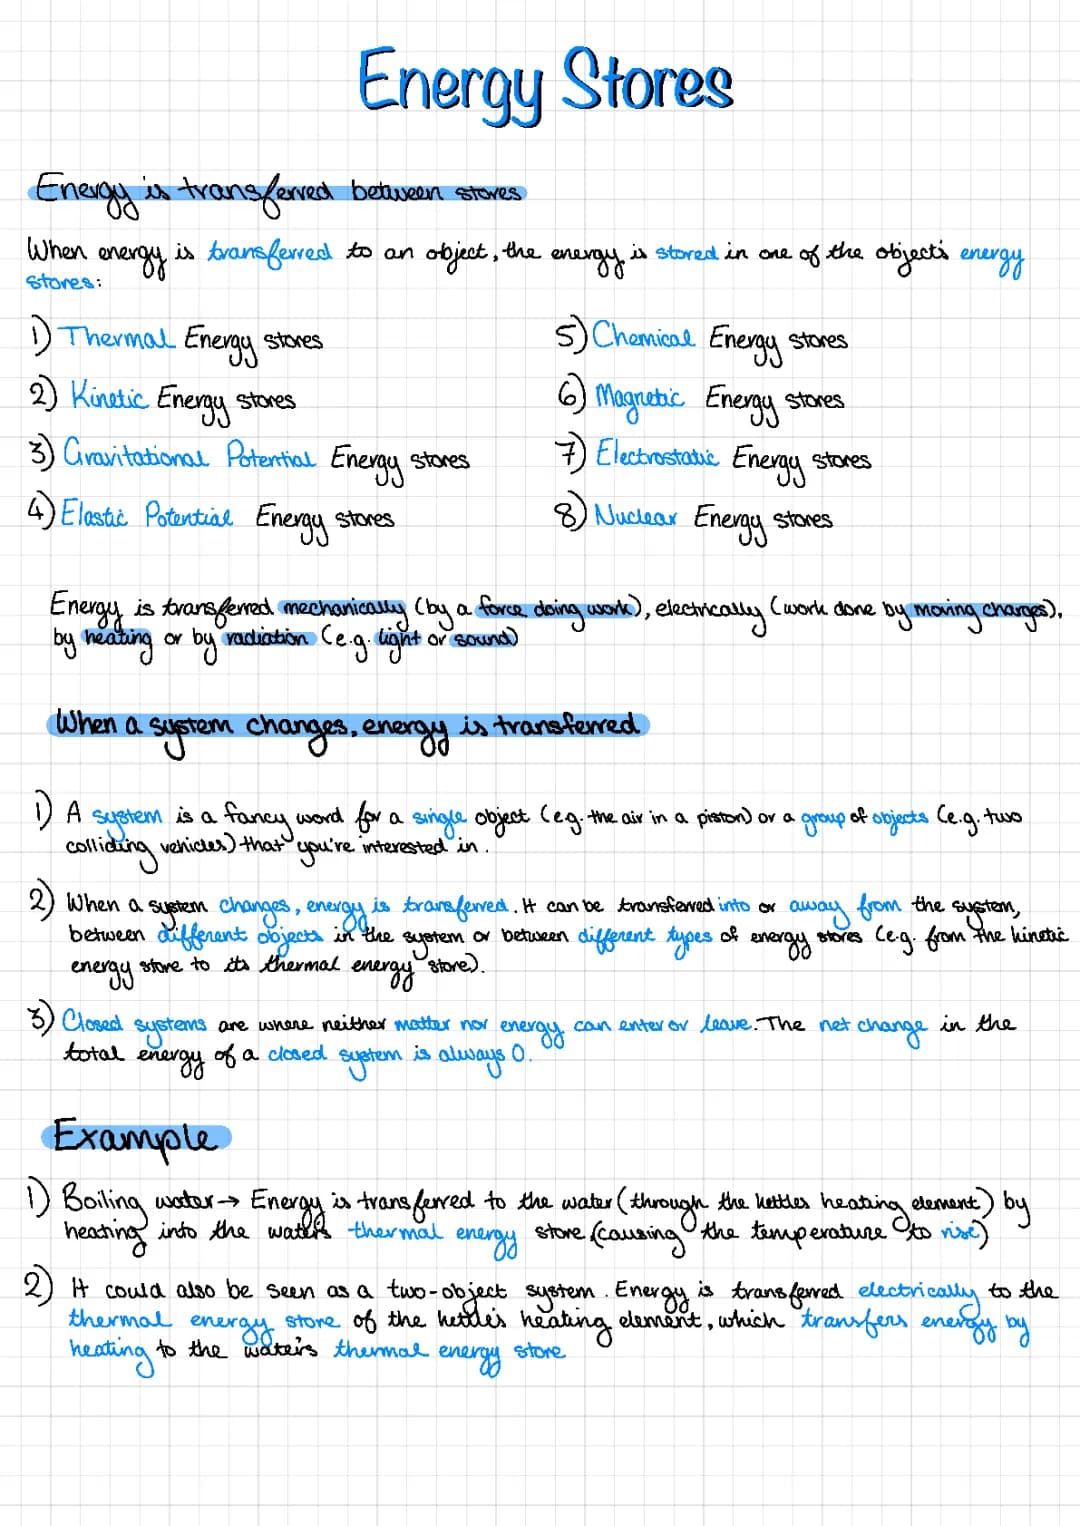 Energy Stores
Energy is transferred between stores
When energy is transferred to an object, the energy is stored in one of the object's energy
stores:
1) Thermal Energy stores
2) Kinetic Energy stores
3) Gravitational Potential Energy stores
4) Elastic Potential Energy stores
5) Chemical Energy stores
6) Magnetic Energy stores
7) Electrostatic Energy stores
8) Nuclear Energy stores
Energy is transferred mechanically (by a force doing work), electrically (work done by moving charges),
by heating or by radiation (e.g. light or sound)
When a system changes, energy is transferred
1) A system is a fancy word for a single object (eg. the air in a piston) or a group of objects (e.g. two
colliding vehicles) that you're interested in.
2) When a system changes, energy is transferred. It can be transferred into or away from the system,
between different objects in the system or between different types of energy stores (e.g. from the kinetic
energy store to its thermal energy store).
3) Closed systems are where neither matter nor energy can enter or leave. The net change in the
total energy of a closed system is always 0.
Example
1) Boiling water → Energy is transferred to the water (through the kettles heating element) by
heating into the water's thermal energy store (causing the temperature to rise)
2) It could also be seen as a two-object system. Energy is transferred electrically to the
thermal energy store of the kettle's heating element, which transfers energy by
heating to the water's thermal energy store